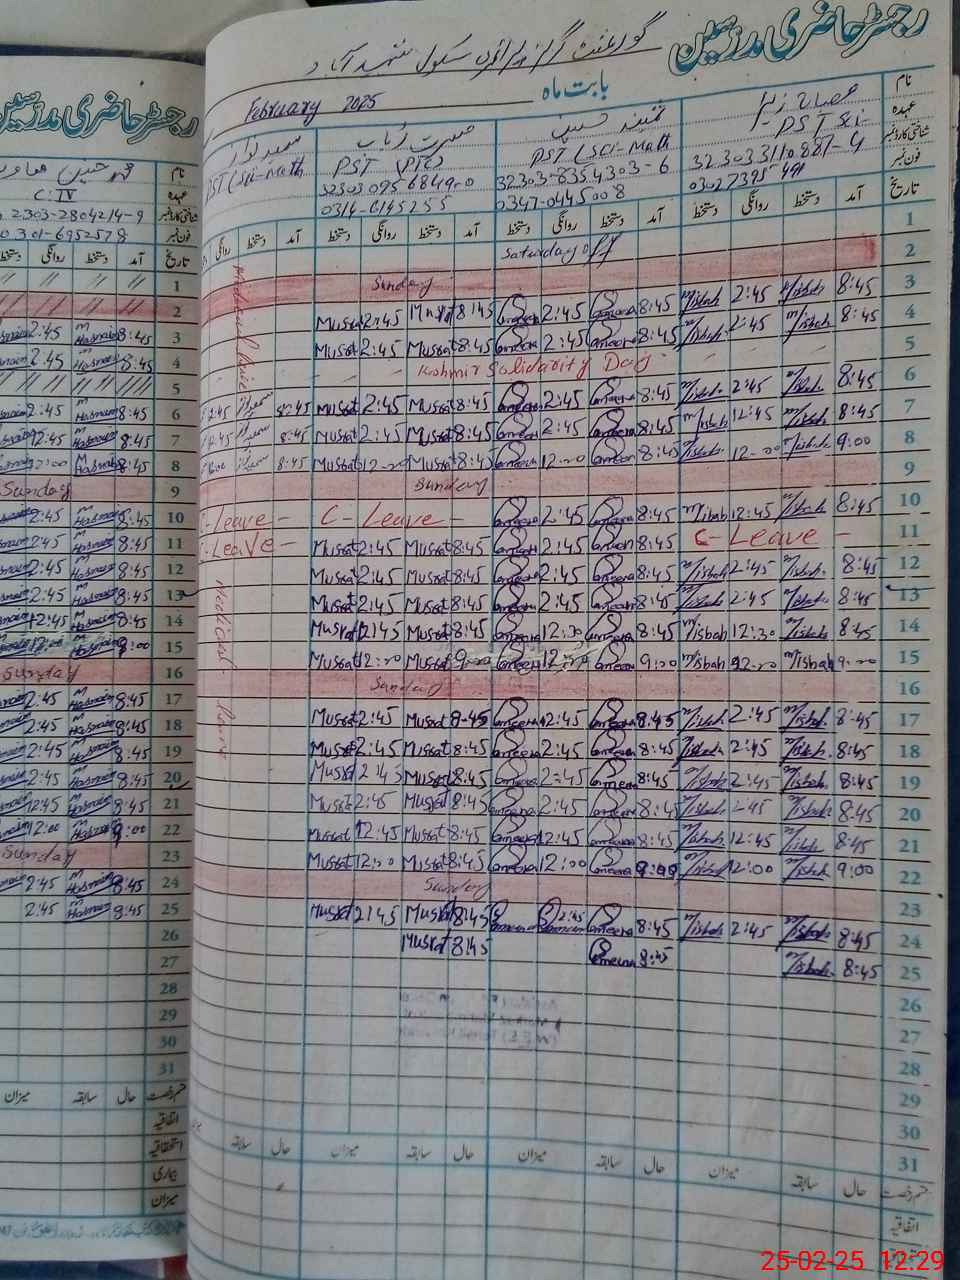 رجسٹر حاضری مدرسین
گورنمنٹ گرلز پرائمری سکول
بابت ماہ February 2025
نام
عہدہ
شناختی کارڈ نمبر
فون نمبر
تاریخ
مصباح زہرا
PST Sci-
ثمینہ حسین
PST (Sci-Math
32303-8354303-6
0347-0445008
مسرت رباب
PST (PTC)
PST (Sci-Math
آمد دستخط روانگی دستخط آمد دستخط روانگی دستخط آمد دستخط روانگی دستخط آمد دستخط روانگی
1 Saturday off
2 Sunday
3 8:45 Misbah 2:45 Misbah 8:45 Sameera 2:45 Sameera 8:45 Musrat 2:45 Musrat
4 8:45 Misbah 2:45 Misbah 8:45 Sameera 2:45 Sameera 8:45 Musrat 2:45 Musrat
5 Kashmir Solidarity Day
6 8:45 Misbah 2:45 Misbah 8:45 Sameera 2:45 Sameera 8:45 Musrat 2:45 Musrat 8:45 2:45
7 8:45 Misbah 12:45 Misbah 8:45 Sameera 2:45 Sameera 8:45 Musrat 2:45 Musrat 8:45 12:45
8 9:00 Misbah 12:00 Misbah 8:45 Sameera 12:00 Sameera 8:45 Musrat 12:00 Musrat 8:45 12:00
9 Sunday
10 8:45 Misbah 12:45 Misbah 8:45 Sameera 2:45 Sameera C- Leave - C- Leave -
11 C- Leave - 8:45 Sameera 2:45 Sameera 8:45 Musrat 2:45 Musrat C- Leave -
12 8:45 Misbah 2:45 Misbah 8:45 Sameera 2:45 Sameera 8:45 Musrat 2:45 Musrat
13 8:45 Misbah 2:45 Misbah 8:45 Sameera 2:45 Sameera 8:45 Musrat 2:45 Musrat
14 8:45 Misbah 12:30 Misbah 8:45 Sameera 12:30 Sameera 8:45 Musrat 12:45 Musrat
15 9:00 Misbah 12:00 Misbah 9:00 Sameera 12:00 Sameera 9:00 Musrat 12:00 Musrat
16 Sunday
17 8:45 Misbah 2:45 Misbah 8:45 Sameera 2:45 Sameera 8:45 Musrat 2:45 Musrat
18 8:45 Misbah 2:45 Misbah 8:45 Sameera 2:45 Sameera 8:45 Musrat 2:45 Musrat
19 8:45 Misbah 2:45 Misbah 8:45 Sameera 2:45 Sameera 8:45 Musrat 2:45 Musrat
20 8:45 Misbah 2:45 Misbah 8:45 Sameera 2:45 Sameera 8:45 Musrat 2:45 Musrat
21 8:45 Misbah 12:45 Misbah 8:45 Sameera 12:45 Sameera 8:45 Musrat 12:45 Musrat
22 9:00 Misbah 12:00 Misbah 9:00 Sameera 12:00 Sameera 8:45 Musrat 12:00 Musrat
23 Sunday
24 8:45 Misbah 2:45 Misbah 8:45 Sameera 2:45 Sameera 8:45 Musrat 2:45 Musrat
25 8:45 Misbah 8:45 Sameera 8:45 Musrat
26
27
28
29
30
31
حال سابقہ میزان حال سابقہ میزان حال سابقہ میزان حال سابقہ
اتفاقیہ
رجسٹر حاضری مدرسین
نام
عہدہ C.IV
شناختی کارڈ نمبر 2303-2804214-9
فون نمبر 0301-6952578
تاریخ آمد دستخط روانگی دستخط
1
2
3 8:45 Hasnain 2:45
4 8:45 Hasnain 2:45
5
6 8:45 Hasnain 2:45
7 8:45 Hasnain 12:45
8 8:45 Hasnain 12:00
9 Sunday
10 8:45 Hasnain 2:45
11 8:45 Hasnain 2:45
12 8:45 Hasnain 2:45
13 8:45 Hasnain 2:45
14 8:45 Hasnain 12:45
15 9:00 Hasnain 12:00
16 Sunday
17 8:45 Hasnain 2:45
18 8:45 Hasnain 2:45
19 8:45 Hasnain 2:45
20 8:45 Hasnain 2:45
21 8:45 Hasnain 12:45
22 9:00 Hasnain 12:00
23 Sunday
24 8:45 Hasnain 2:45
25 8:45 Hasnain 2:45
26
27
28
29
30
31
قسم رخصت حال سابقہ میزان
اتفاقیہ
استحقاقیہ
بیماری
میزان
25-02-25 12:29